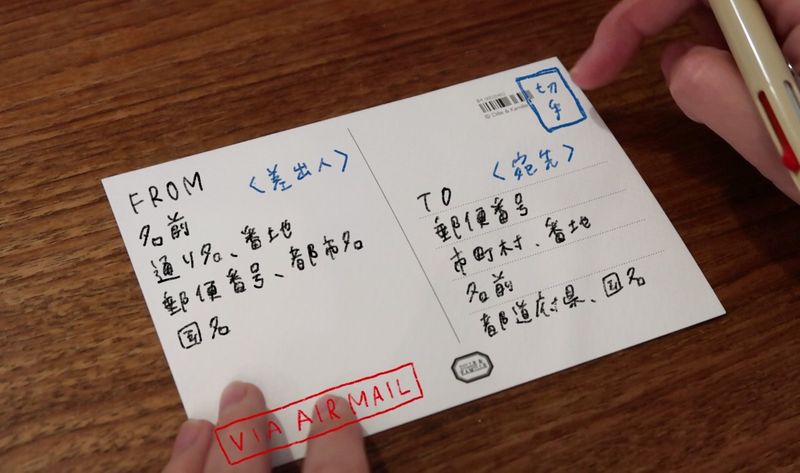 FROM
<差出人>
名前
通り名、番地
郵便番号、都市名
国名
切手
© Dille & Kamille
<宛先>
TO
郵便番号
市町村、番地
名前
都道府県、国名
DILLE & KAMILLE
VIA AIR MAIL